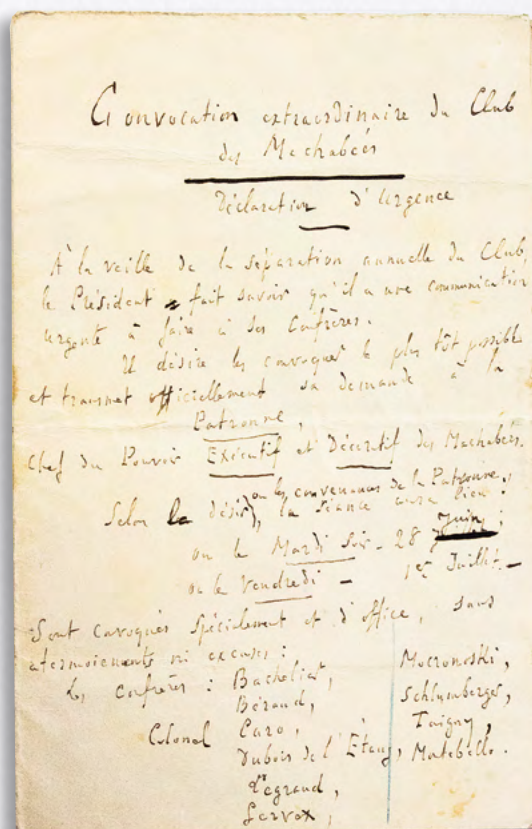 Convocation extraordinaire du Club
des Machabées
Déclaration d'Urgence
À la veille de la séparation annuelle du Club,
le Président fait savoir qu'il a une communication
urgente à faire à ses Confrères.
Il désire les convoquer le plus tôt possible
et transmet officiellement sa demande à la
Patronne,
Chef du Pouvoir Exécutif et Décoratif des Machabées.
ou les convenances de la Patronne,
Selon le désir, la séance aura lieu :
ou le Mardi soir - 28 Juin ;
ou le Vendredi - 1er Juillet. -
Sont convoqués spécialement et d'office, sans
atermoiements ni excuses :
Les confrères : Bachelier, Mocronoski,
Béraud, Schlumberger,
Colonel Caro, Taigny,
Dubois de l'Etang, Montebello.
Legrand,
Gervex,